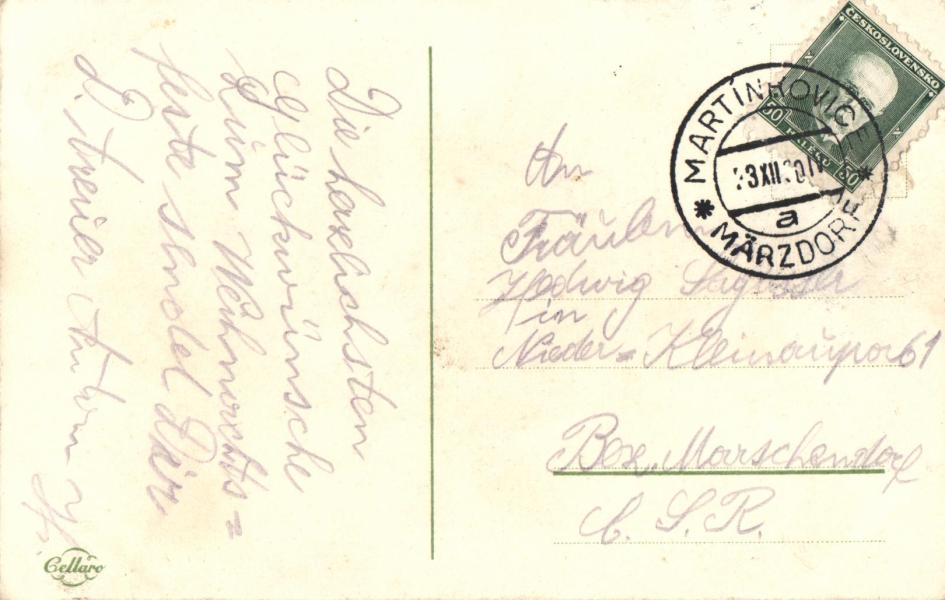 Die herzlichsten
Glückwünsche
zum Weihnachts=
feste sendet Dir
D. treuer Anton
An
Fräulein
Hedwig
in
Nieder=Kleinaupa 61
Bez. Marschendorf
C. S. R.
ČESKOSLOVENSKO
50 HALÉŘŮ 50
MARTÍNKOVICE
3 XII 30
a
* MÄRZDORF *
Cellaro